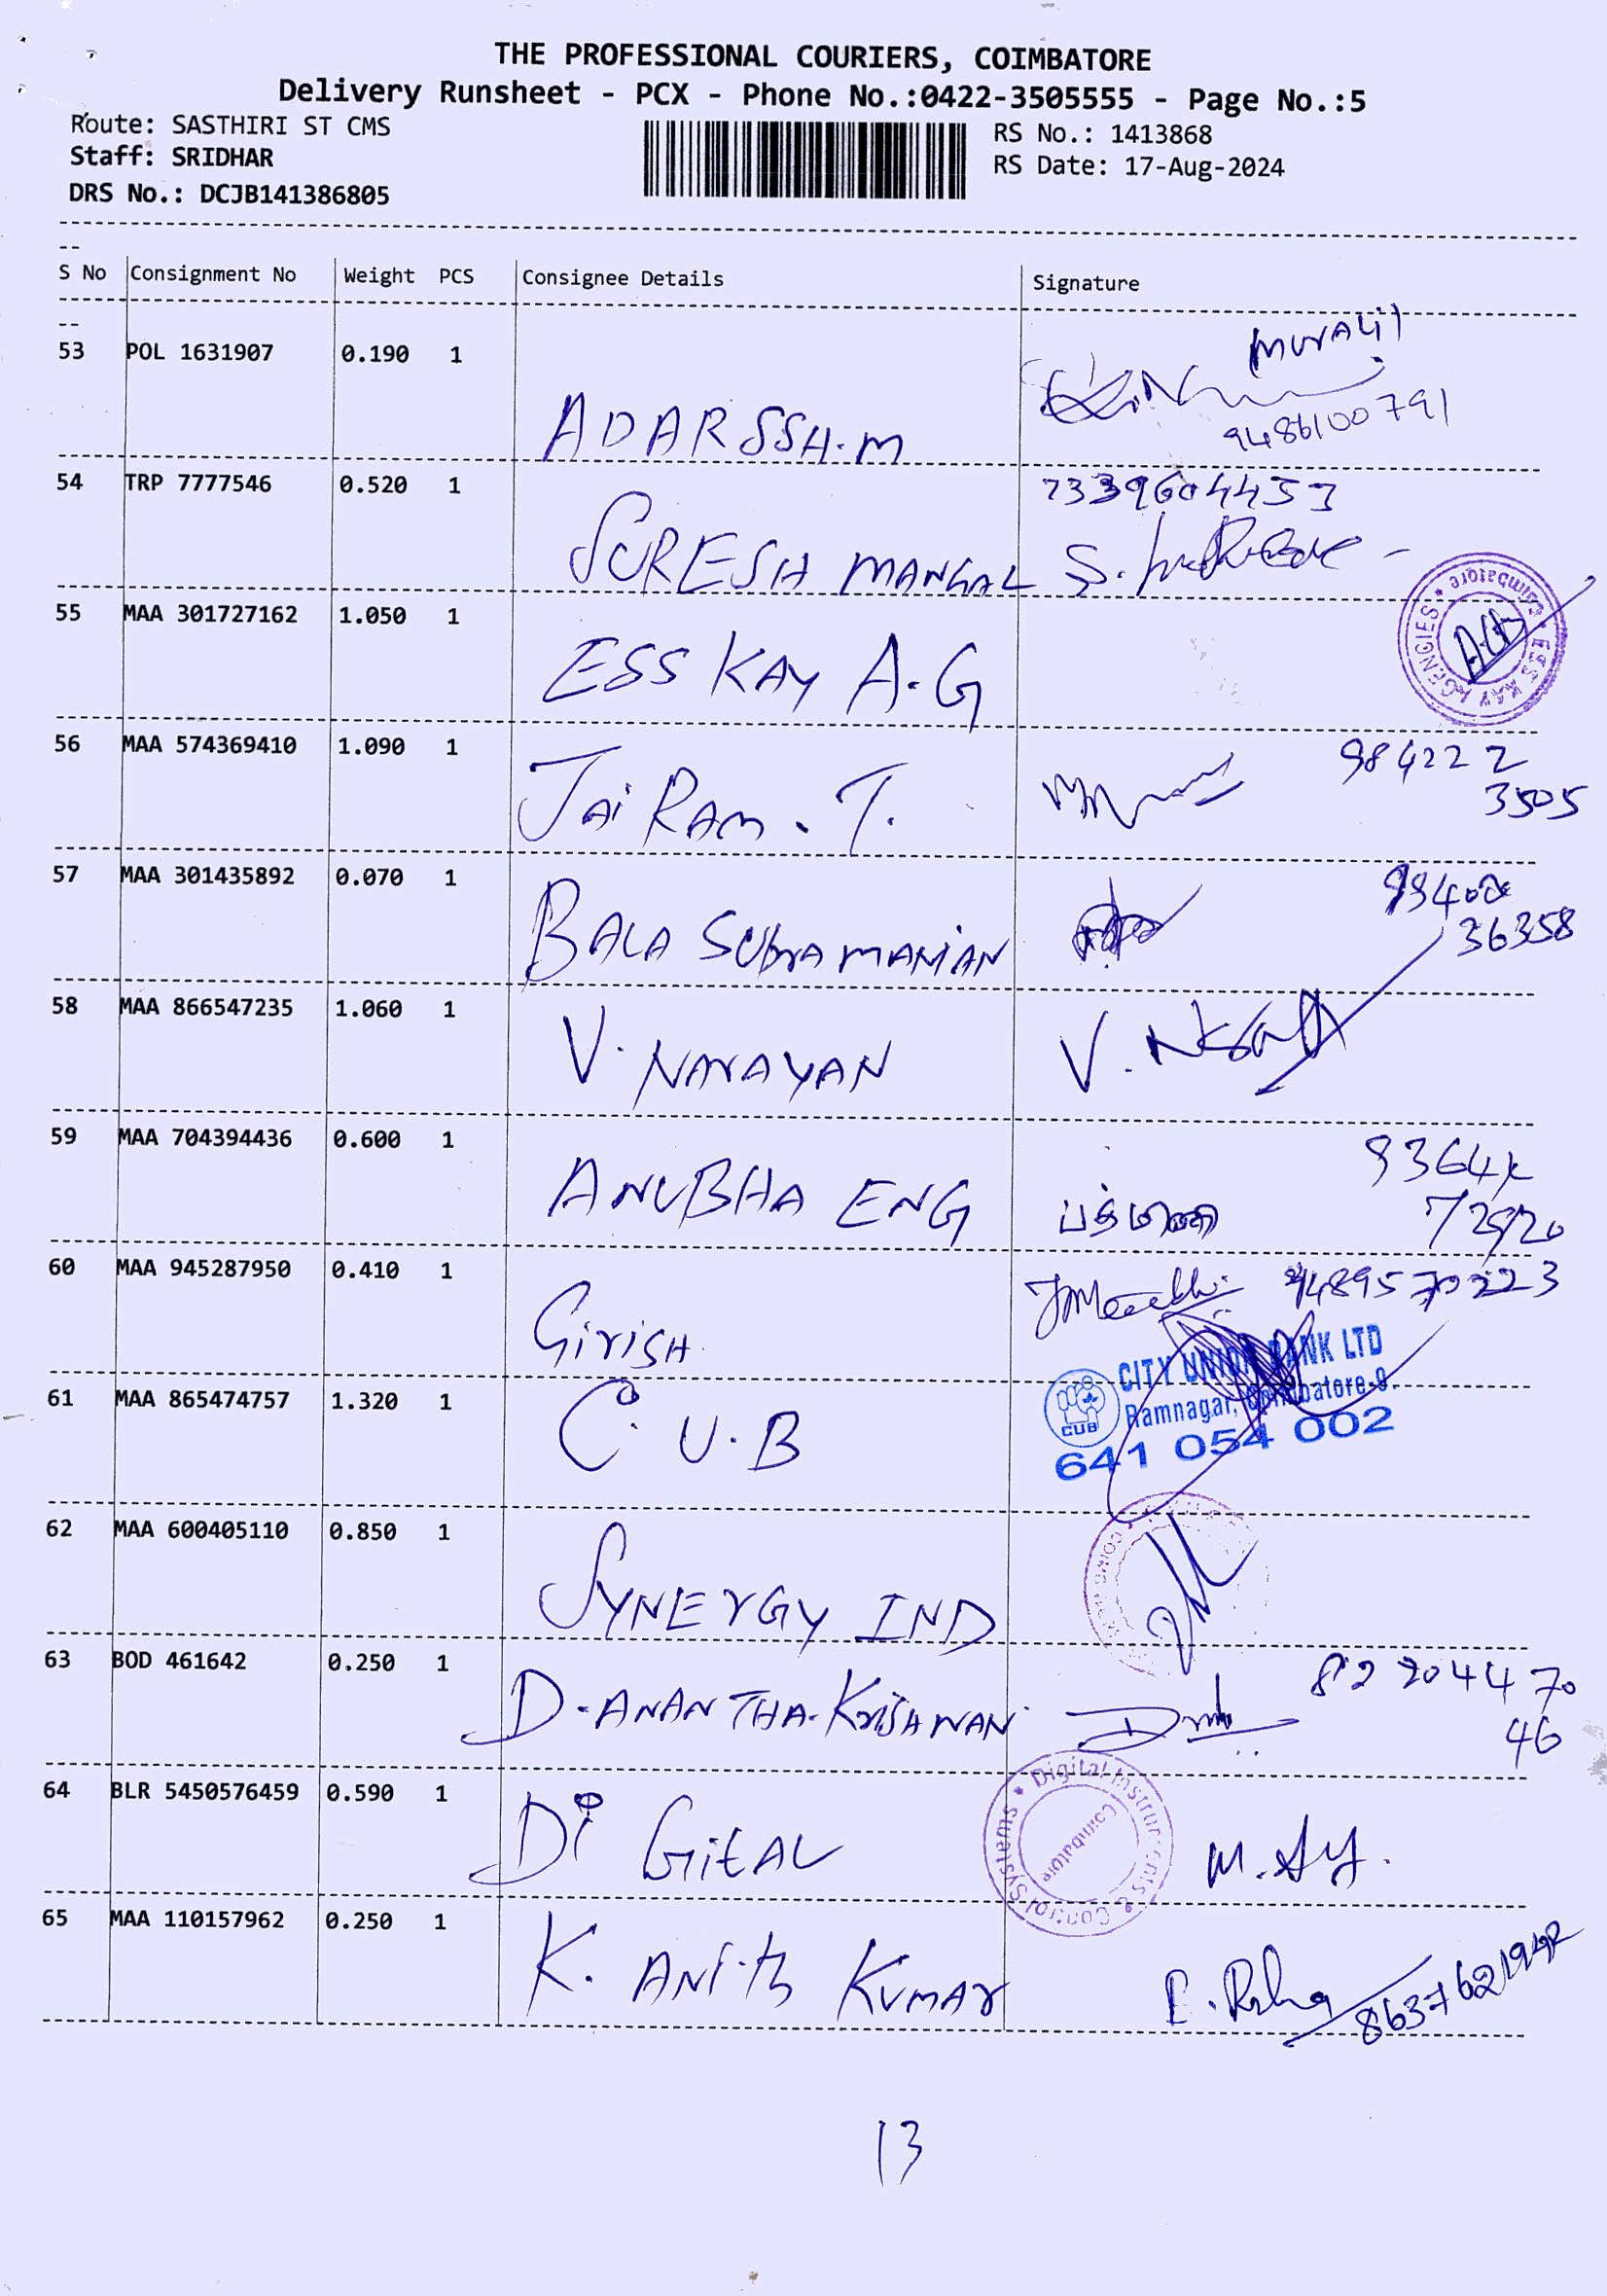 THE PROFESSIONAL COURIERS, COIMBATORE
Delivery Runsheet - PCX - Phone No.:0422-3505555 - Page No.:5
Route: SASTHIRI ST CMS
RS No.: 1413868
Staff: SRIDHAR
RS Date: 17-Aug-2024
DRS No.: DCJB141386805
S No Consignment No Weight PCS Consignee Details Signature
MURALI
53 POL 1631907 0.190 1
ADARSSH.M 9486100791
54 TRP 7777546 0.520 1 7339604453
SURESH MANGAL S.
55 MAA 301727162 1.050 1
ESS KAY A.G
ESS KAY AGENCIES * Coimbatore *
56 MAA 574369410 1.090 1 984222
JAi RAM . T. 3505
57 MAA 301435892 0.070 1
BALA SUbrAMANiAN 36358
58 MAA 866547235 1.060 1
V. NArAYAN V.
59 MAA 704394436 0.600 1
ANUBHA ENG
60 MAA 945287950 0.410 1
GiriSH.
CITY UNION BANK LTD
61 MAA 865474757 1.320 1
Ramnagar, Coimbatore-9.
CUB
C. U.B
641 054 002
62 MAA 600405110 0.850 1
SYNErGY IND
63 BOD 461642 0.250 1
D-ANANTHA-KriSHNAN
46
64 BLR 5450576459 0.590 1
Digital Instruments & Control Systems * Coimbatore
Di GitAL M.
65 MAA 110157962 0.250 1
K. ANith KUMAr
13